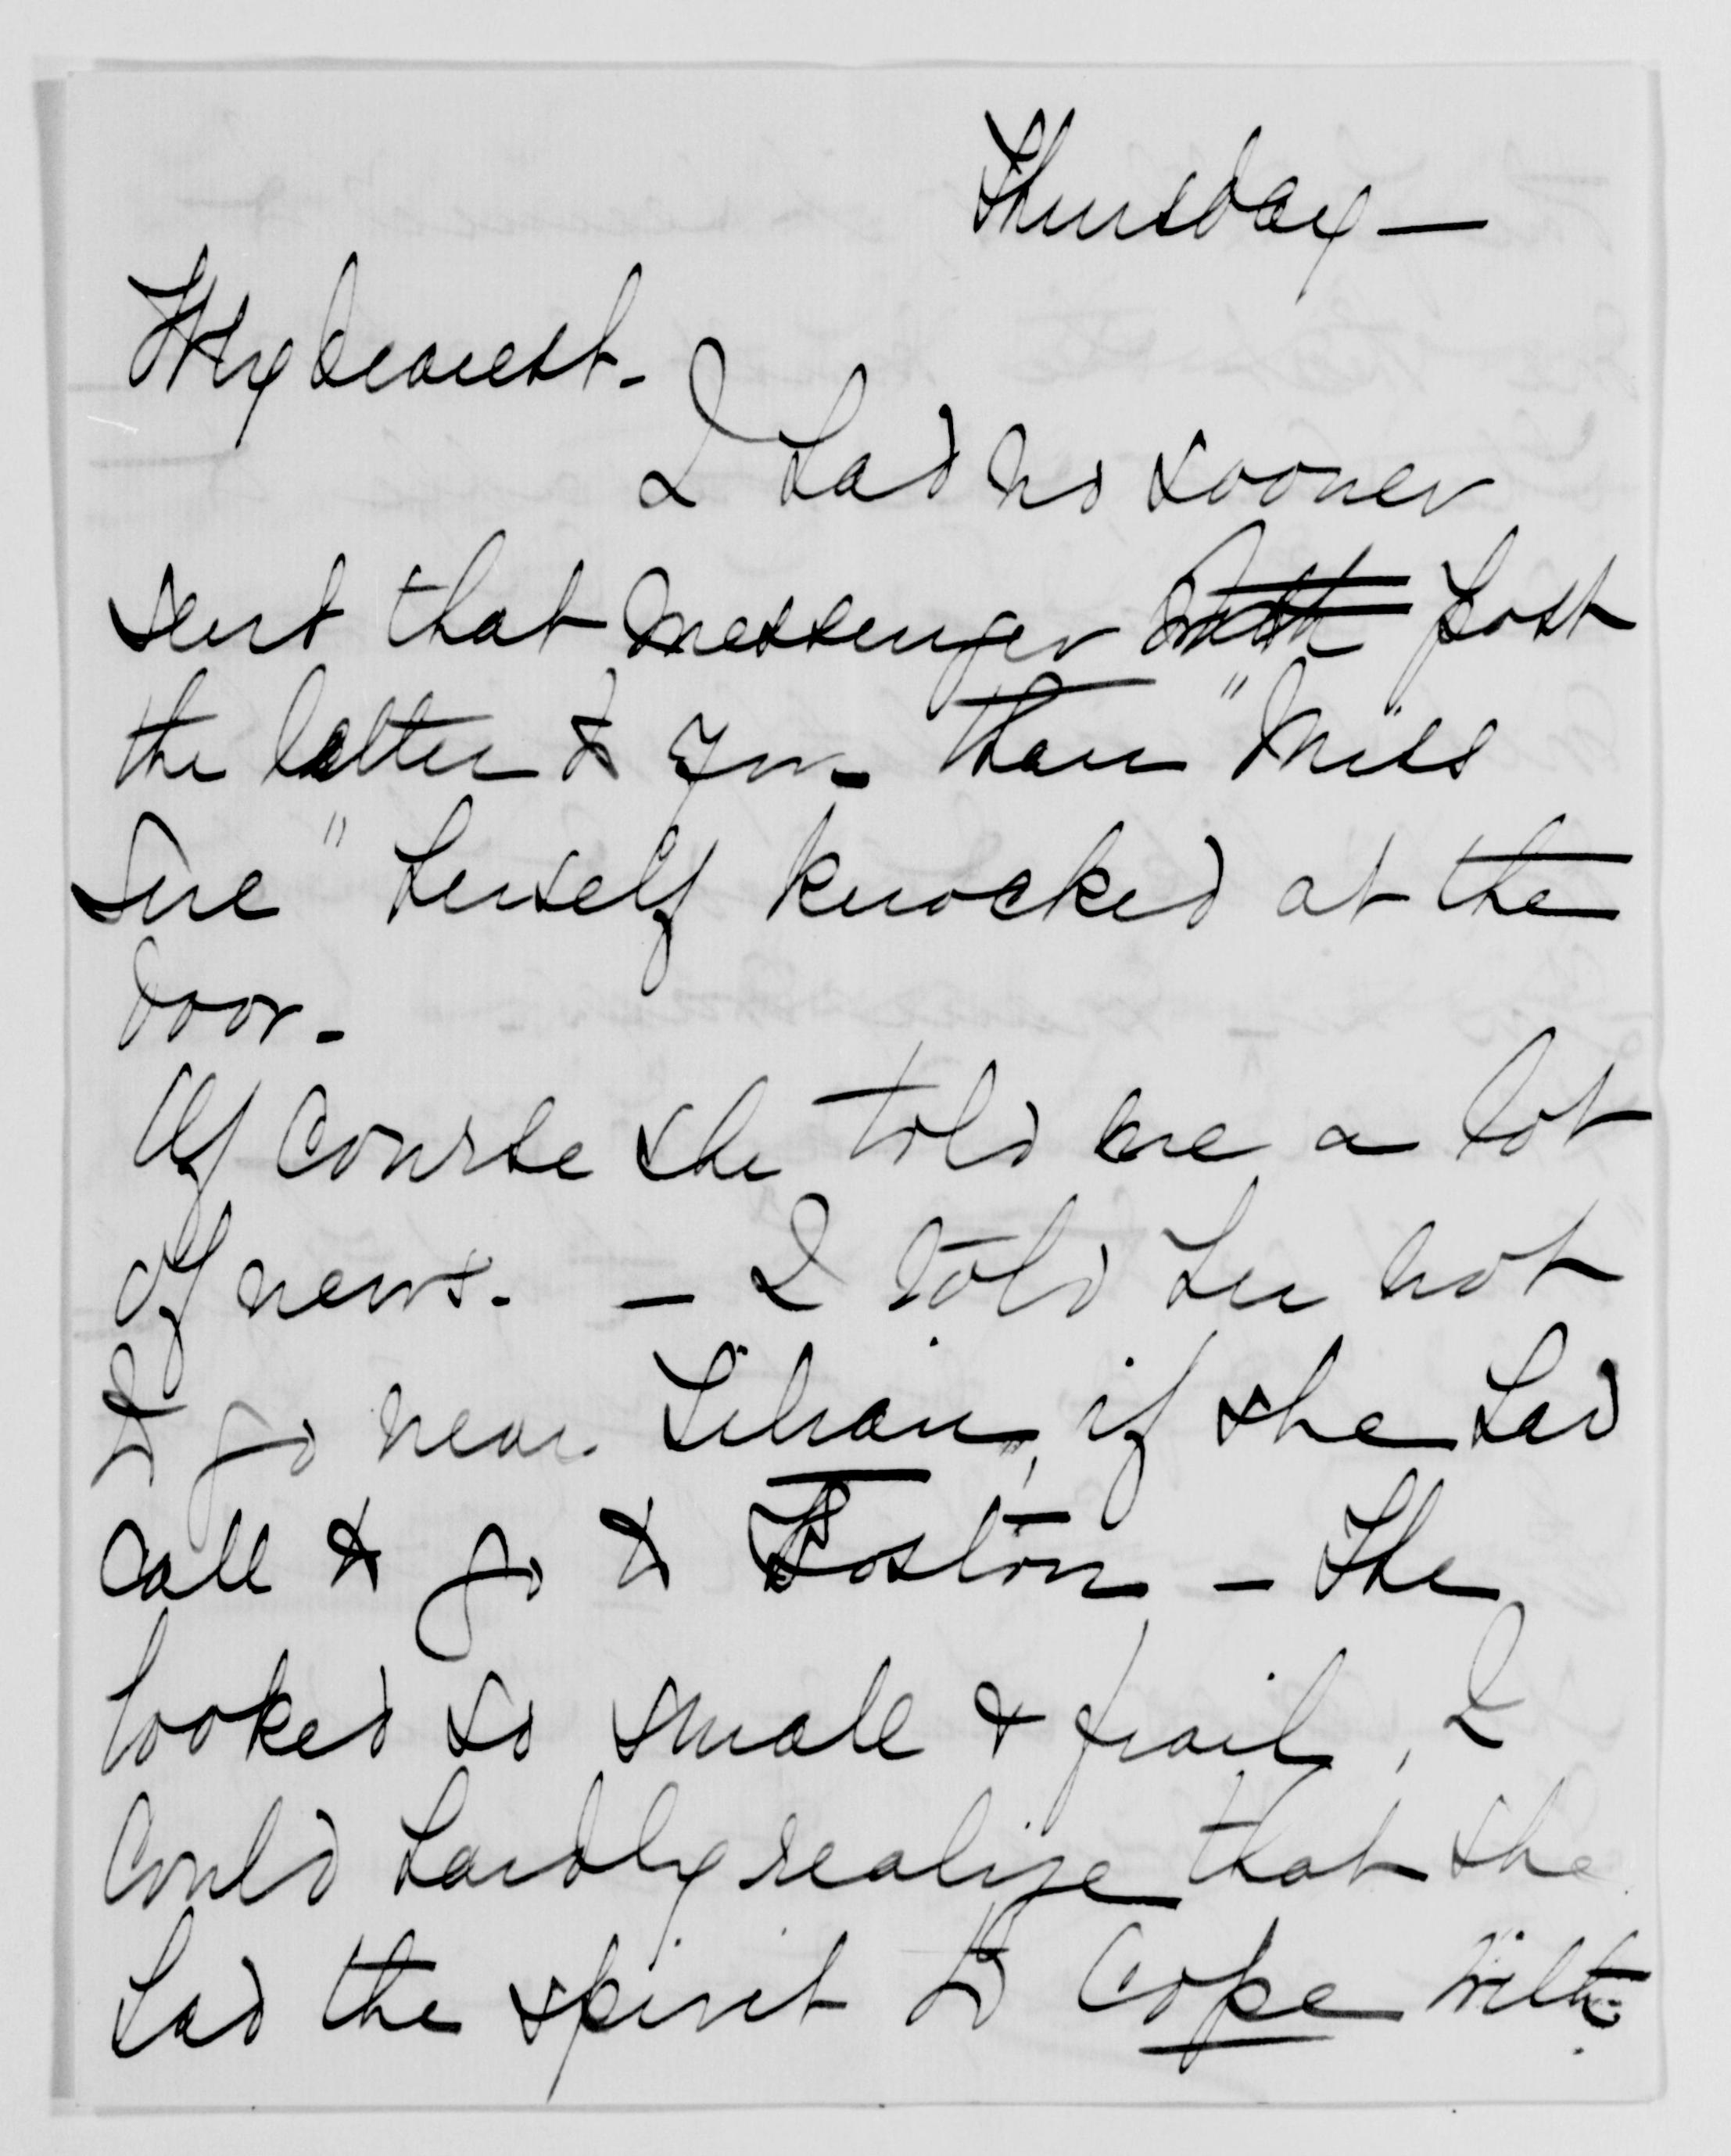 Thursday —
My dearest -
I had no sooner
sent that messenger with post
the letter to you - than "Miss
Sue" herself knocked at the
door -
Of course she told me a lot
of news. - I told her not
to go near Lilian, if she had
call to go to Boston - She
looked so small & frail, I
could hardly realize that she
had the spirit to cope with